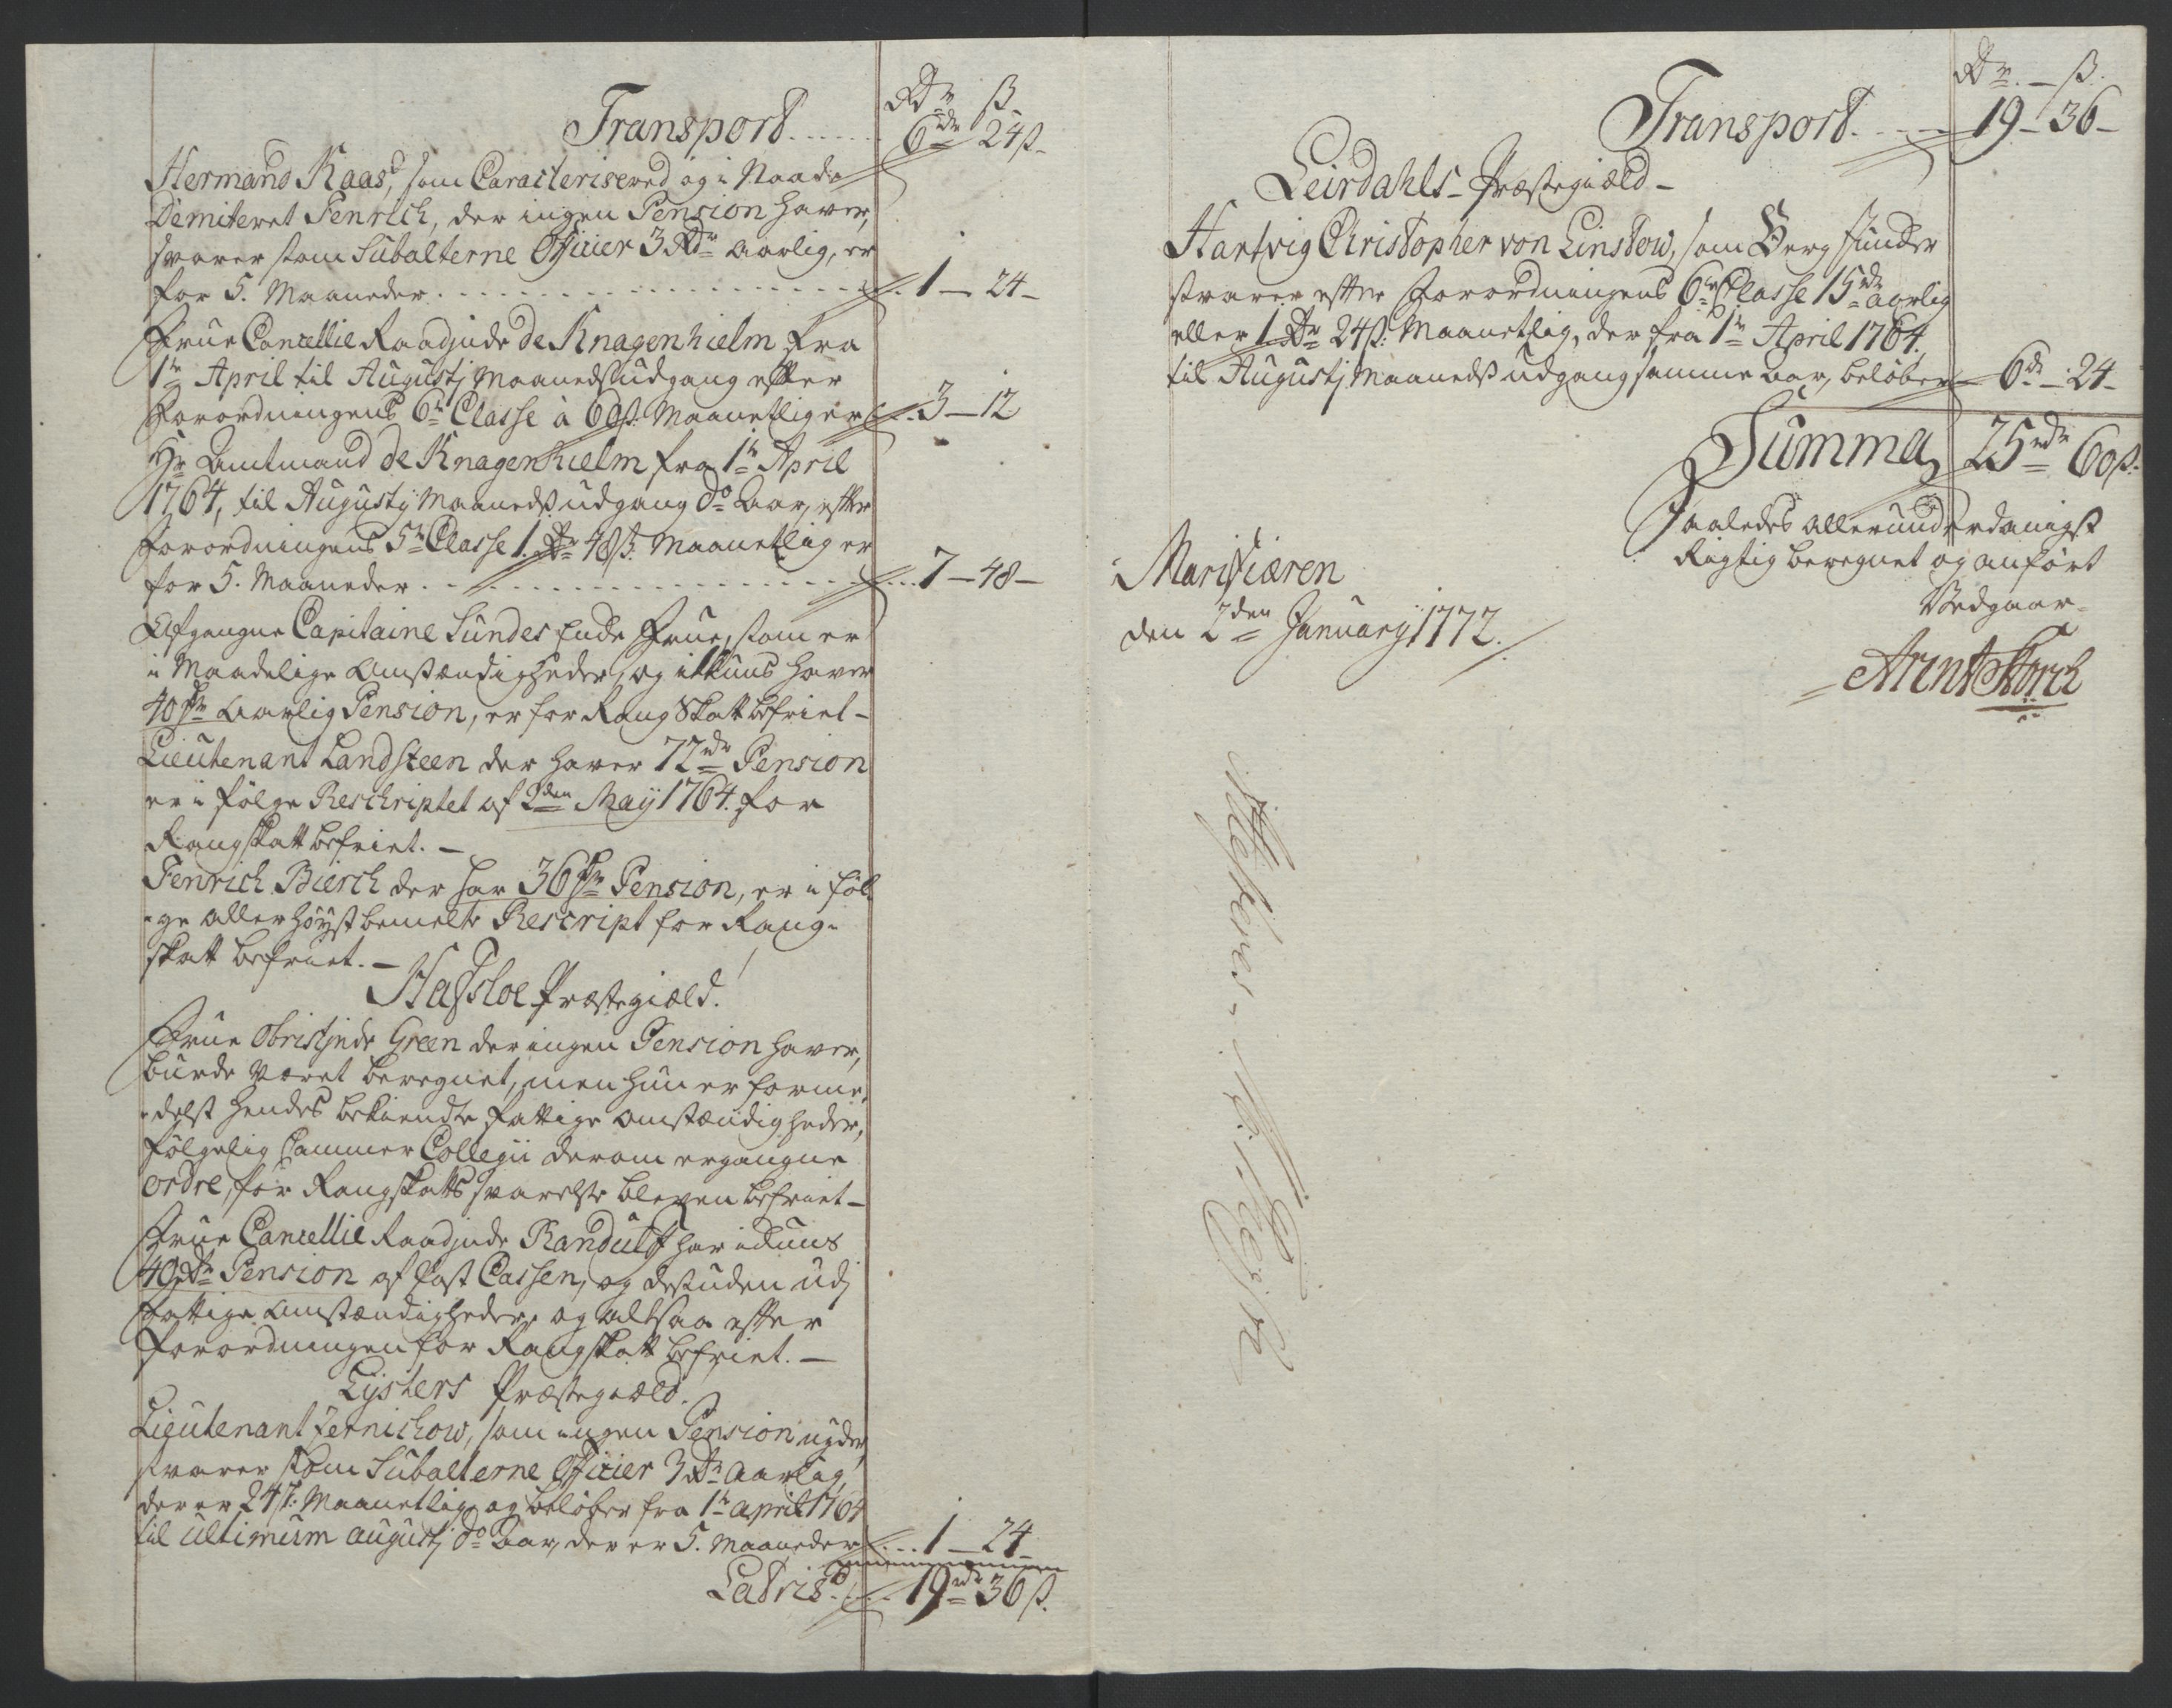 Rdr ß
Transport . . . . . . 6rdr 24ß
Hermand Kaas, som Caracteriseret og i Naade
Demiteret Fenrich, der ingen Pension haver,
svarer som Subalterne Officier 3 Rdr aarlig, er
for 5. Maaneder . . . . . . 1 — 24 —
Frue Cancellie Raadjnde de Knagenhielm fra
1te April til Augustj Maaneds udgang efter
Forordningens 6te Classe à 60ß Maanetlig er . . 3 — 12
Hr Amtmand de Knagenhielm fra 1te April
1764, til Augustij Maaneds udgang do Aar, efter
Forordningens 5te Classe 1. Rdr 48ß. Maanetlig er
for 5. Maaneder . . . . . . 7 — 48 —
Afgangne Capitaine Sundes Enke Frue, som er
i Maadelige Omstændigheder, og ikkuns haver
40 rdr Aarlig Pension, er for Rang Skatt befriet —
Lieutenant Landsteen der haver 72rdr Pension
er i følge Reschriptet af 2den Maij 1764. for
Rangskatt befriet. —
Fenrich Bierch der har 36 rdr Pension, er i føl-
-ge allerhøyst bemelte Rescript for Rang-
skatt befriet. —
Hafsloe Præstegiæld.
Frue Obristjnde Green der ingen Pension haver,
burde været beregnet, men hun er forme-
-delst hendes bekiendte fattige omstændigheder,
følgelig Cammer Collegii derom ergangne
ordre, for Rangskatts svarelse bleven befriet —
Frue Cancellie Raadjnde Randulff har ickuns
40 Rdr Pension af Post Cassen, og desuden udj
fattige Omstændigheder, og altsaa efter
Forordningen for Rangskatt befriet. —
Lysters Præstegiæld.
Lieutenant Zernichow, som ingen Pension nyder,
svarer som Subalterne Officier 3 Rdr Aarlig,
der er 24ß. Maanetlig, og beløber fra 1te April 1764
til ultimum Augustj do Aar, der er 5. Maaneder . . . 1 — 24 —
Latris . . . . 19rdr 36ß.
Rdr. — ß.
Transport. . . . . 19 — 36 —
Leirdahls Præstegiæld —
Hartvig Christopher von Linstow, som Berg
svarer efter Forordningens 6te Classe 15rdr aarlig
eller 1 Rdr 24ß: Maanetlig, der fra 1te April 1764.
til Augustj Maaneds udgang samme aar, beløber 6rdr — 24 —
Summa 25rdr 60ß.
Saaledes allerunderdanigst
Rigtig beregnet og anført
Vedgaar
Marifiæren
den 2den January 1772.
Arent Storch